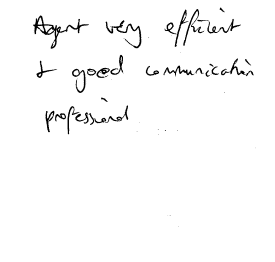 Agent very efficient
& good communication
professional